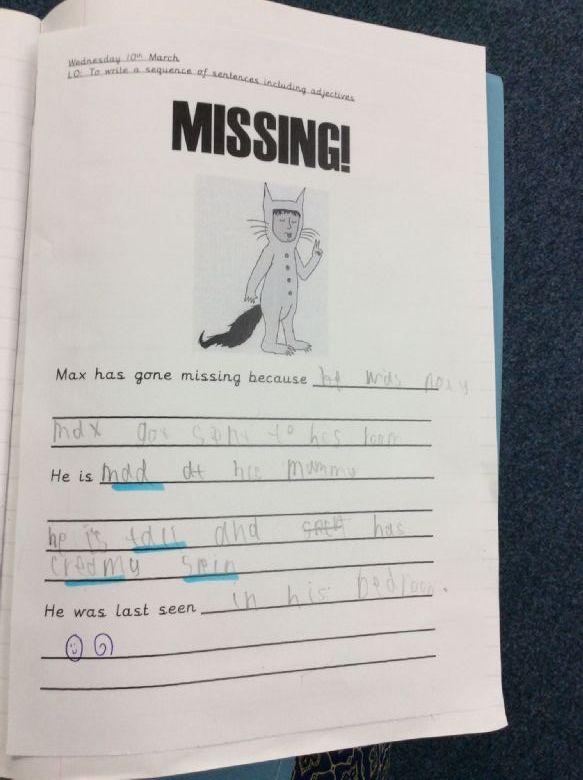 Wednesday 10th March
LO: To write a sequence of sentences including adjectives
MISSING!
Max has gone missing because he was
max got sent to his room
He is mad at his mummy
he is tall and has
creamy
He was last seen in his bedroom.